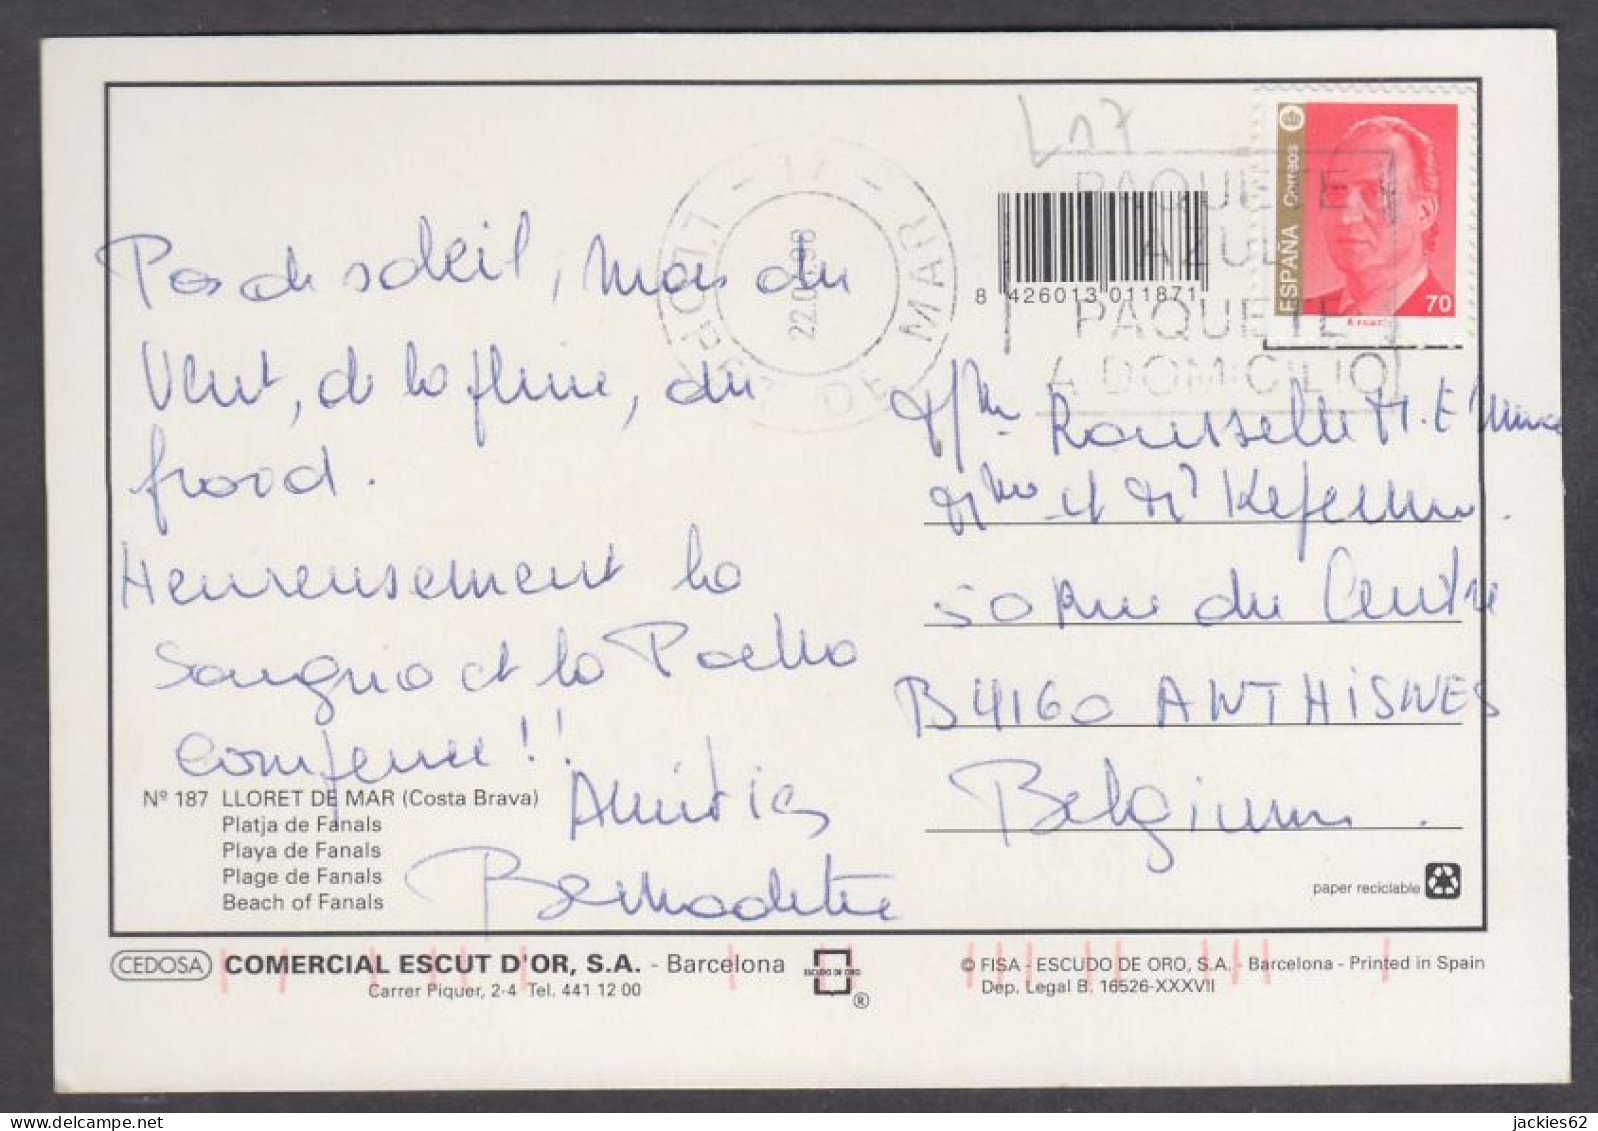 L17
17
LLORET DE MAR
PAQUETE
AZUL
PAQUETE
A DOMICILIO
ESPAÑA Correos
70
8 426013 011871
Pas de soleil, mais du
vent, de la pluie, du
froid.
Heureusement la
Sangria et la Paella
compense !!
Amitiés
Bernadette
Rousselle M. E
Mme et Mr
50 Rue du Centre
B4160 ANTHISNES
Belgium.
Nº 187 LLORET DE MAR (Costa Brava)
Platja de Fanals
Playa de Fanals
Plage de Fanals
Beach of Fanals
paper reciclable
CEDOSA COMERCIAL ESCUT D'OR, S.A. - Barcelona
Carrer Piquer, 2-4 Tel. 441 12 00
ESCUDO DE ORO
®
© FISA - ESCUDO DE ORO, S.A. - Barcelona - Printed in Spain
Dep. Legal B. 16526-XXXVII
jackies62